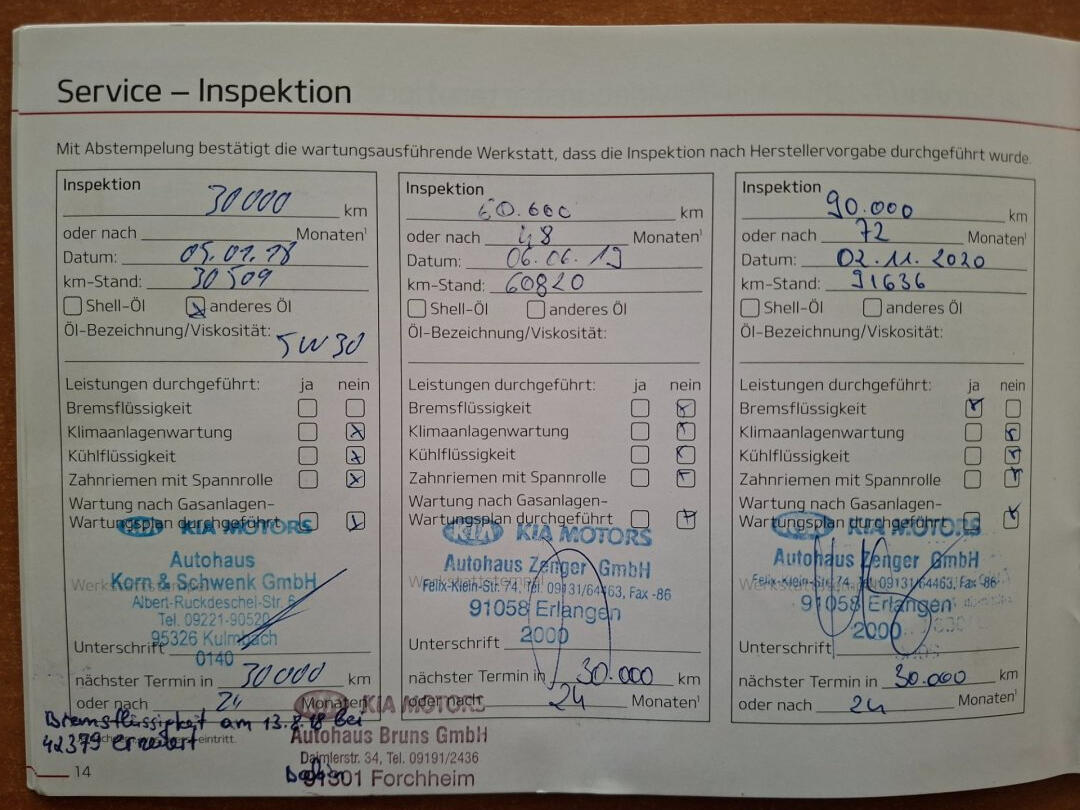 Service – Inspektion
Mit Abstempelung bestätigt die wartungsausführende Werkstatt, dass die Inspektion nach Herstellervorgabe durchgeführt wurde.
Inspektion 30000 km
oder nach Monaten¹
Datum: 05.01.18
km-Stand: 30509
Shell-Öl anderes Öl
Öl-Bezeichnung/Viskosität:
5W30
Leistungen durchgeführt: ja nein
Bremsflüssigkeit
Klimaanlagenwartung
Kühlflüssigkeit
Zahnriemen mit Spannrolle
Wartung nach Gasanlagen-
Wartungsplan durchgeführt
KIA MOTORS
Autohaus
Korn & Schwenk GmbH
Werkstattstempel
Albert-Ruckdeschel-Str. 6
Tel. 09221-90520
95326 Kulmbach
Unterschrift
0140
nächster Termin in 30000 km
oder nach 24 Monaten
Bremsflüssigkeit am 13.8.18 bei
42379 erneuert
Inspektion 60.000 km
oder nach 48 Monaten¹
Datum: 06.06.19
km-Stand: 60820
Shell-Öl anderes Öl
Öl-Bezeichnung/Viskosität:
Leistungen durchgeführt: ja nein
Bremsflüssigkeit
Klimaanlagenwartung
Kühlflüssigkeit
Zahnriemen mit Spannrolle
Wartung nach Gasanlagen-
Wartungsplan durchgeführt
KIA KIA MOTORS
Autohaus Zenger GmbH
Werkstattstempel
Felix-Klein-Str. 74, Tel. 09131/64463, Fax -86
91058 Erlangen
2000
Unterschrift
nächster Termin in 30.000 km
oder nach 24 Monaten¹
KIA MOTORS
Autohaus Bruns GmbH
Daimlerstr. 34, Tel. 09191/2436
91301 Forchheim
Inspektion 90.000 km
oder nach 72 Monaten¹
Datum: 02.11.2020
km-Stand: 91636
Shell-Öl anderes Öl
Öl-Bezeichnung/Viskosität:
Leistungen durchgeführt: ja nein
Bremsflüssigkeit
Klimaanlagenwartung
Kühlflüssigkeit
Zahnriemen mit Spannrolle
Wartung nach Gasanlagen-
Wartungsplan durchgeführt
KIA MOTORS
Autohaus Zenger GmbH
Werkstattstempel
Felix-Klein-Str. 74, Tel. 09131/64463, Fax -86
91058 Erlangen
2000
Unterschrift
nächster Termin in 30.000 km
oder nach 24 Monaten¹
14